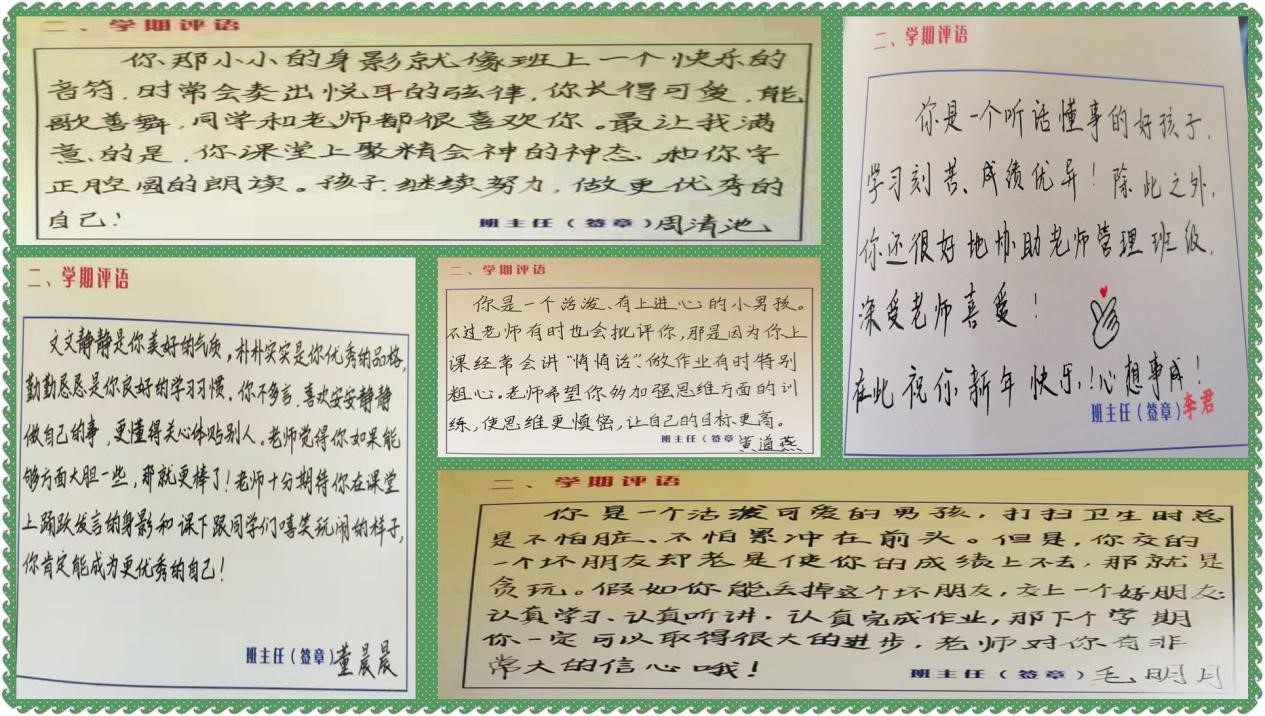 二、学期评语
你那小小的身影就像班上一个快乐的
音符,时常会奏出悦耳的弦律,你长得可爱,能
歌善舞,同学和老师都很喜欢你。最让我满
意的是,你课堂上聚精会神的神态,和你字
正腔圆的朗读。孩子,继续努力,做更优秀的
自己!
班主任(签章)周清池
二、学期评语
你是一个听话懂事的好孩子,
学习刻苦、成绩优异!除此之外,
你还很好地协助老师管理班级,
深受老师喜爱!
在此祝你新年快乐!心想事成!
班主任(签章)李君
二、学期评语
文文静静是你美好的气质,朴朴实实是你优秀的品格,
勤勤恳恳是你良好的学习习惯。你不多言,喜欢安安静静
做自己的事,更懂得关心体贴别人。老师觉得你如果能
够方面大胆一些,那就更棒了!老师十分期待你在课堂
上踊跃发言的身影和课下跟同学们嘻笑玩闹的样子,
你肯定能成为更优秀的自己!
班主任(签章)董晨晨
二、学期评语
你是一个活泼、有上进心的小男孩。
不过老师有时也会批评你,那是因为你上
课经常会讲“悄悄话”,做作业有时特别
粗心。老师希望你多加强思维方面的训
练,使思维更慎密,让自己的目标更高。
班主任(签章)黄道燕
二、学期评语
你是一个活泼可爱的男孩,打扫卫生时总
是不怕脏、不怕累冲在前头。但是,你交的
一个坏朋友却老是使你的成绩上不去,那就是
贪玩。假如你能丢掉这个坏朋友,交上一个好朋友:
认真学习、认真听讲、认真完成作业,那下个学期
你一定可以取得很大的进步,老师对你有非
常大的信心哦!
班主任(签章)毛明月